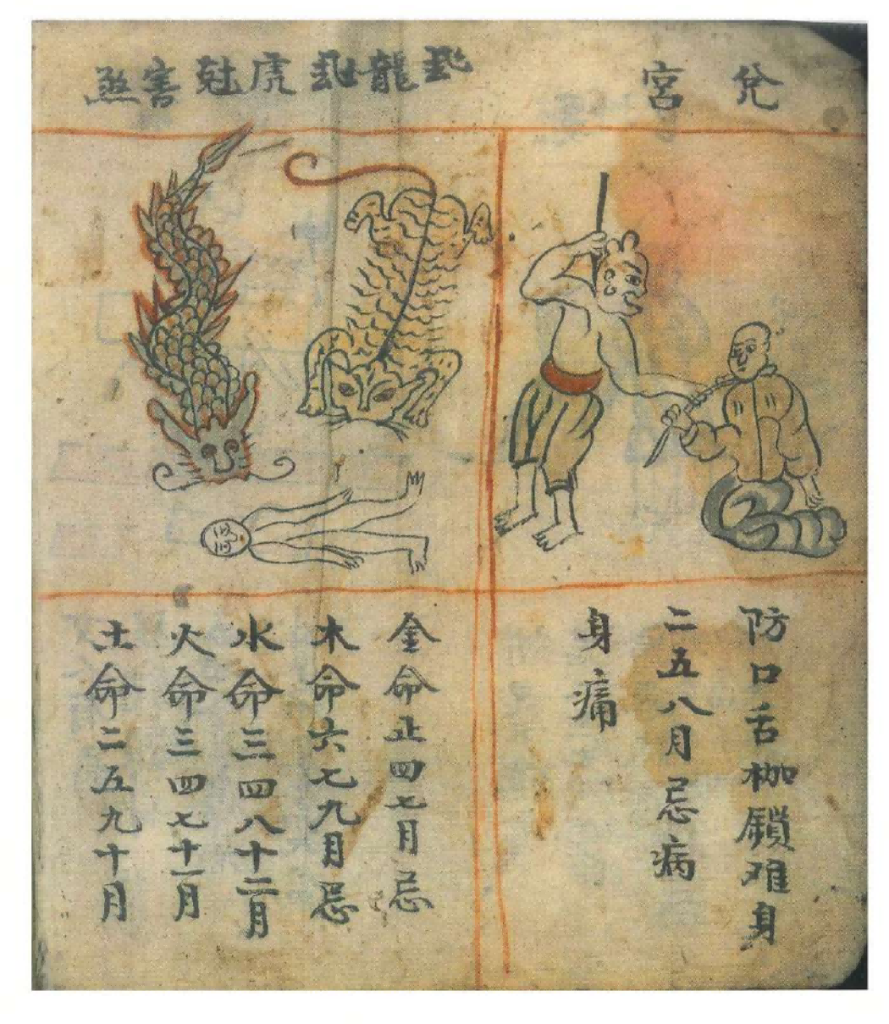 兌宮
防口舌枷鎖难身
二五八月忌病
身痛
龍虎尅害煞
金命正四七月忌
木命六七九月忌
水命三四八十二月
火命三四七十一月
土命二五九十月